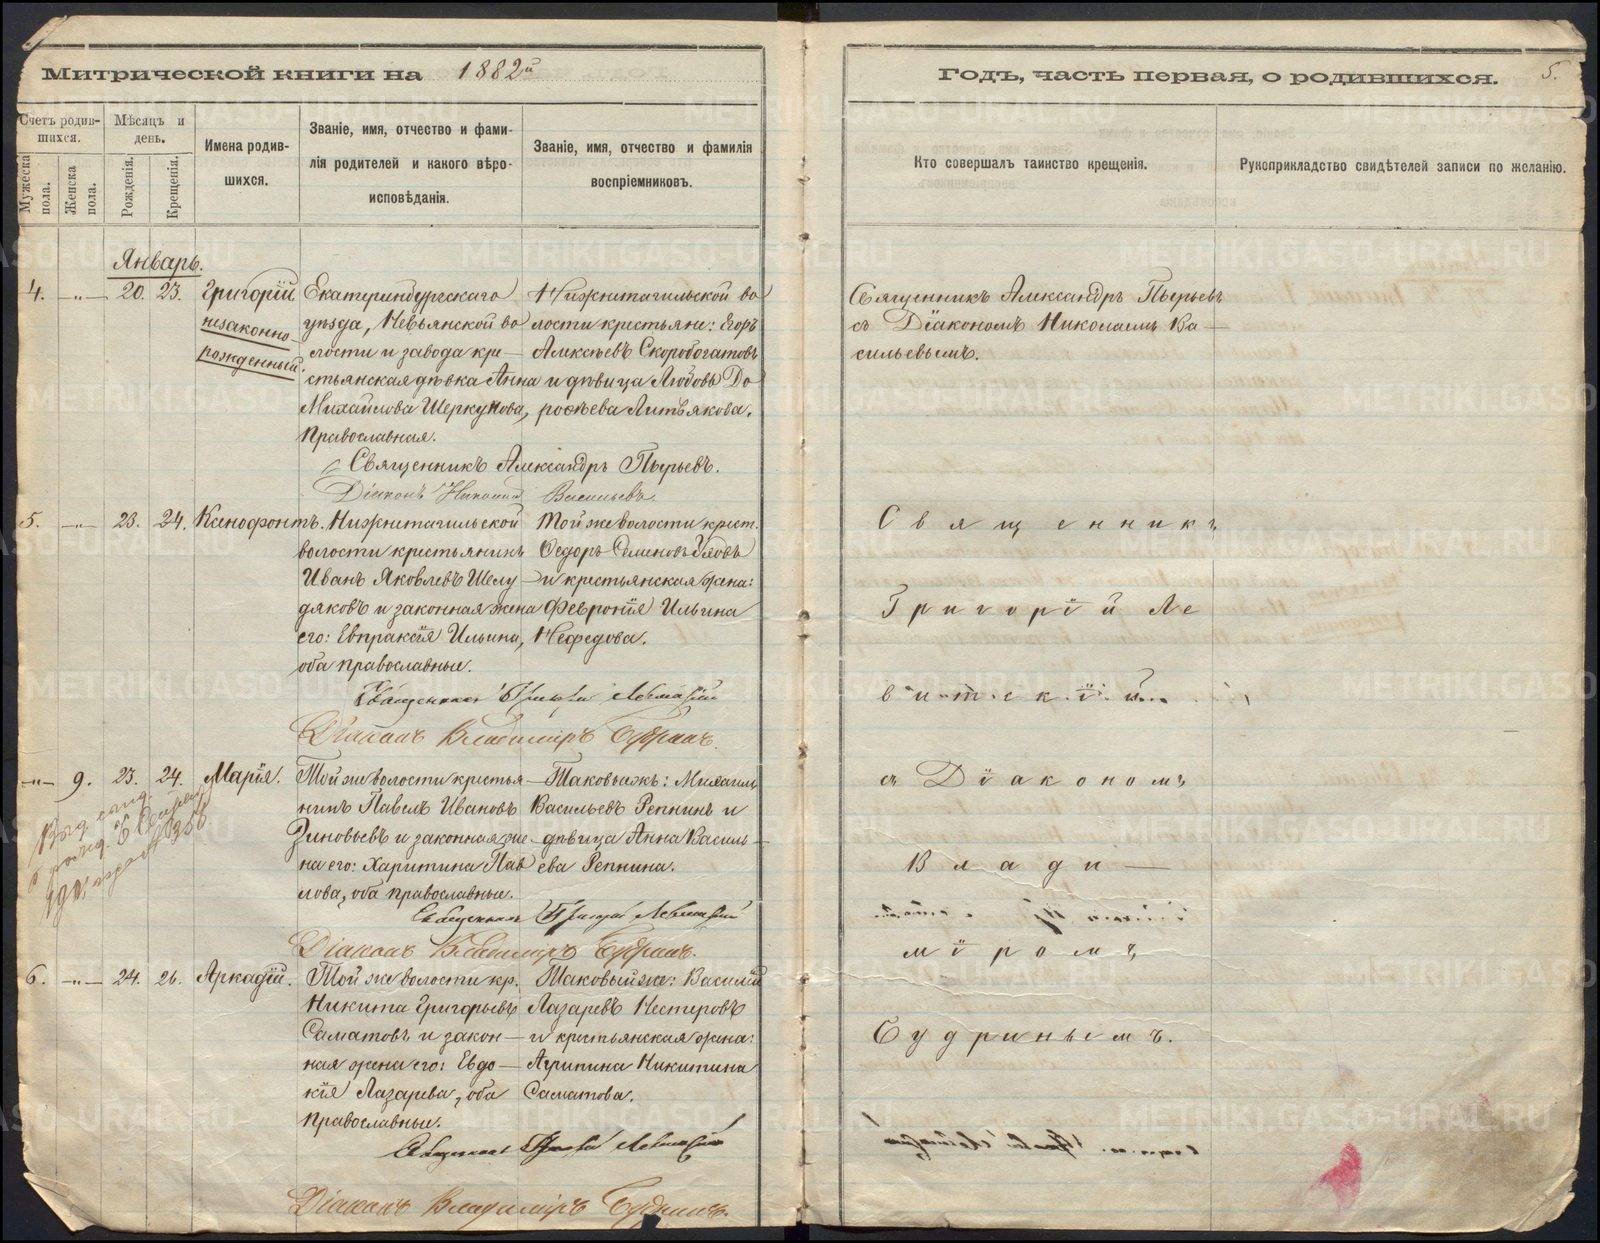 Митрической книги на 1882й
Годъ, часть первая, о родившихся. 5.
Счетъ родившихся.
Мужеска пола.
Женска пола.
Мѣсяцъ и день.
Рожденія.
Крещенія.
Имена родившихся.
Званіе, имя, отчество и фамилія родителей и какого вѣроисповѣданія.
Званіе, имя, отчество и фамилія воспріемниковъ.
Кто совершалъ таинство крещенія.
Рукоприкладство свидѣтелей записи по желанію.
Январь.
4. -"- 20. 23. Григорій
незаконно-
рожденный.
Екатеринбургскаго
уѣзда, Невьянской во
лости и завода кре—
стьянская дѣвка Анна
Михайлова Шеркунова,
православная.
Нижнетагильской во
лости крестьяне: Егоръ
Алексѣевъ Скоробогатовъ
и дѣвица Любовь До
рофѣева Литвякова.
Священникъ Александръ Пырьевъ
съ Діакономъ Николаемъ Ва—
сильевымъ.
Священникъ Александръ Пырьевъ.
Діаконъ Николай Васильевъ
5. -"- 23. 24. Ксенофонтъ.
Нижнетагильской
волости крестьянинъ
Иванъ Яковлевъ Шелу—
дяковъ и законная жена
его: Евпраксія Ильина,
оба православные.
Тойже волости крест.
Ѳедоръ Семеновъ
и крестьянская жена:
Февронія Ильина
Нефедова.
Священникъ Григорій Левитскій
Діаконъ Владиміръ Будринъ.
-"- 9. 23. 24. Марія.
Той же волости кресть
нинъ Павелъ Ивановъ
Зиновьевъ и законная же
на его: Харитина Пав
лова, оба православные.
Таковыежъ: Михаилъ
Васильевъ Репнинъ и
дѣвица Анна Василь—
ева Репнина.
Священникъ Григорій Левитскій
Діаконъ Владиміръ Будринъ.
6. -"- 24. 26. Аркадій.
Той же волости кр.
Никита Григорьевъ
Саматовъ и закон—
ная жена его: Евдо—
кія Лазарева, оба
православные.
Таковыйже: Василій
Лазаревъ Нестеровъ
и крестьянская жена:
Агрипина Никитина
Саматова.
Священникъ Григорій Левитскій
Діаконъ Владиміръ Будринъ.
Священникъ
Григорій Ле
витскій
съ Діакономъ
Влади—
міромъ
Будринымъ.
METRIKI.GASO-URAL.RU